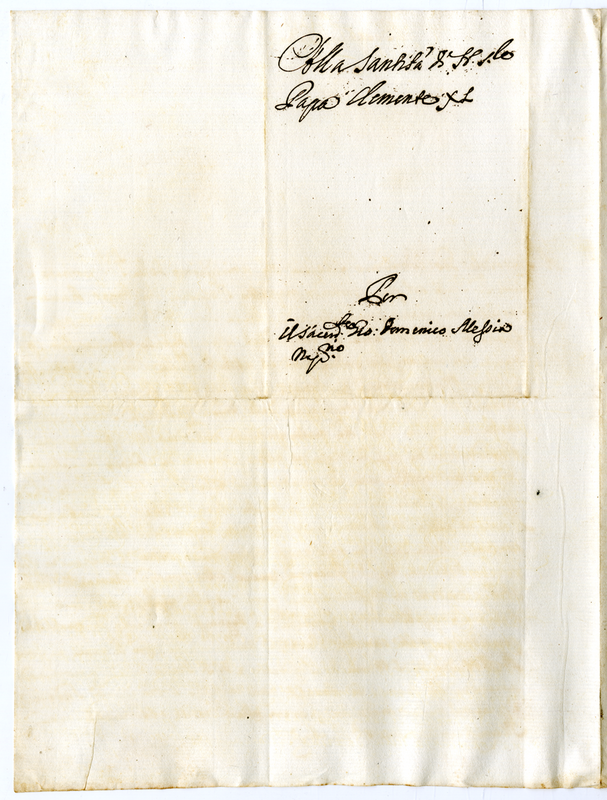 Alla Santità di N. S.re
Papa Clemente XI
Per
il Sacer.te Gio: Domenico Alessio
Nap.no